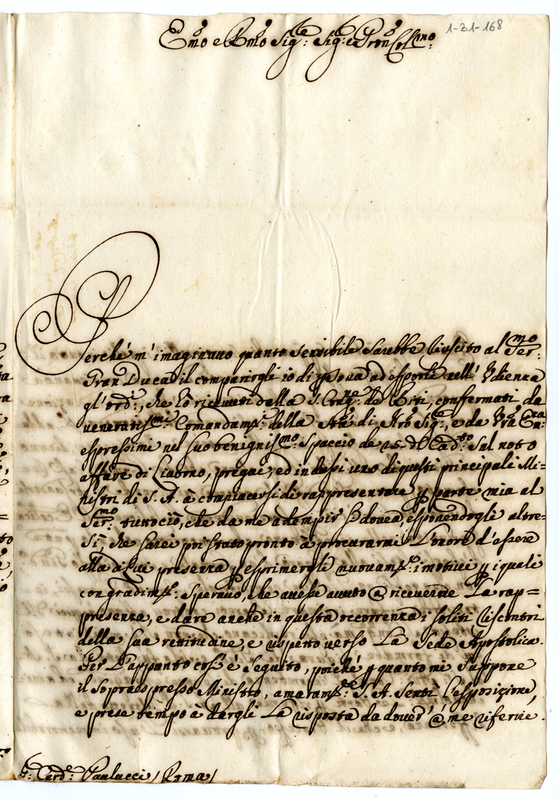 Emo e Rmo Sigre: Sigre e Pron Colmo:
1-31-168
Perché m'imaginauo quanto sensibile sarebbe riuscito al Sermo:
Gran Duca il comparirgli io di psona ad esporre nell'Vdienza
gl'ordi:, che hò riceuuti dalla S. Congne: de Riti, confermati da
uenerarismi: Comandamti: della Stà di Nro Sigre, e da Vra Emza
espressimi nel suo benignismo: spaccio de 25. del Cadto: sul noto
affare di Liuorno, pregai, ed indussi uno di questi principali Mi=
nistri di S. A. à compiacersi di rappresentare p parte mia al
Sermo: tuttociò, che da me adempir si doueua, esponendogli altre=
sì, che sarei poi stato pronto à procurarmi l'onore d'essere
alla di sua presenza p esprimergli nuouamte: i motiui, p i quali
con gradimto: sperauo, che auesse auuto @ riceuerne la rap=
presenza, e dare anche in questa recorrenza i soliti riscontri
della sua rettitudine, e rispetto uerso La Sede Apostolica.
Per l'appunto così è seguito, poiche p quanto mi suppone
il sopraespresso Ministro, amaramte: S. A. sentì l'esposizione,
e prese tempo à dargli La risposta da douer' @ me riferire.
Sr: Cardle: Paulucci / Roma /